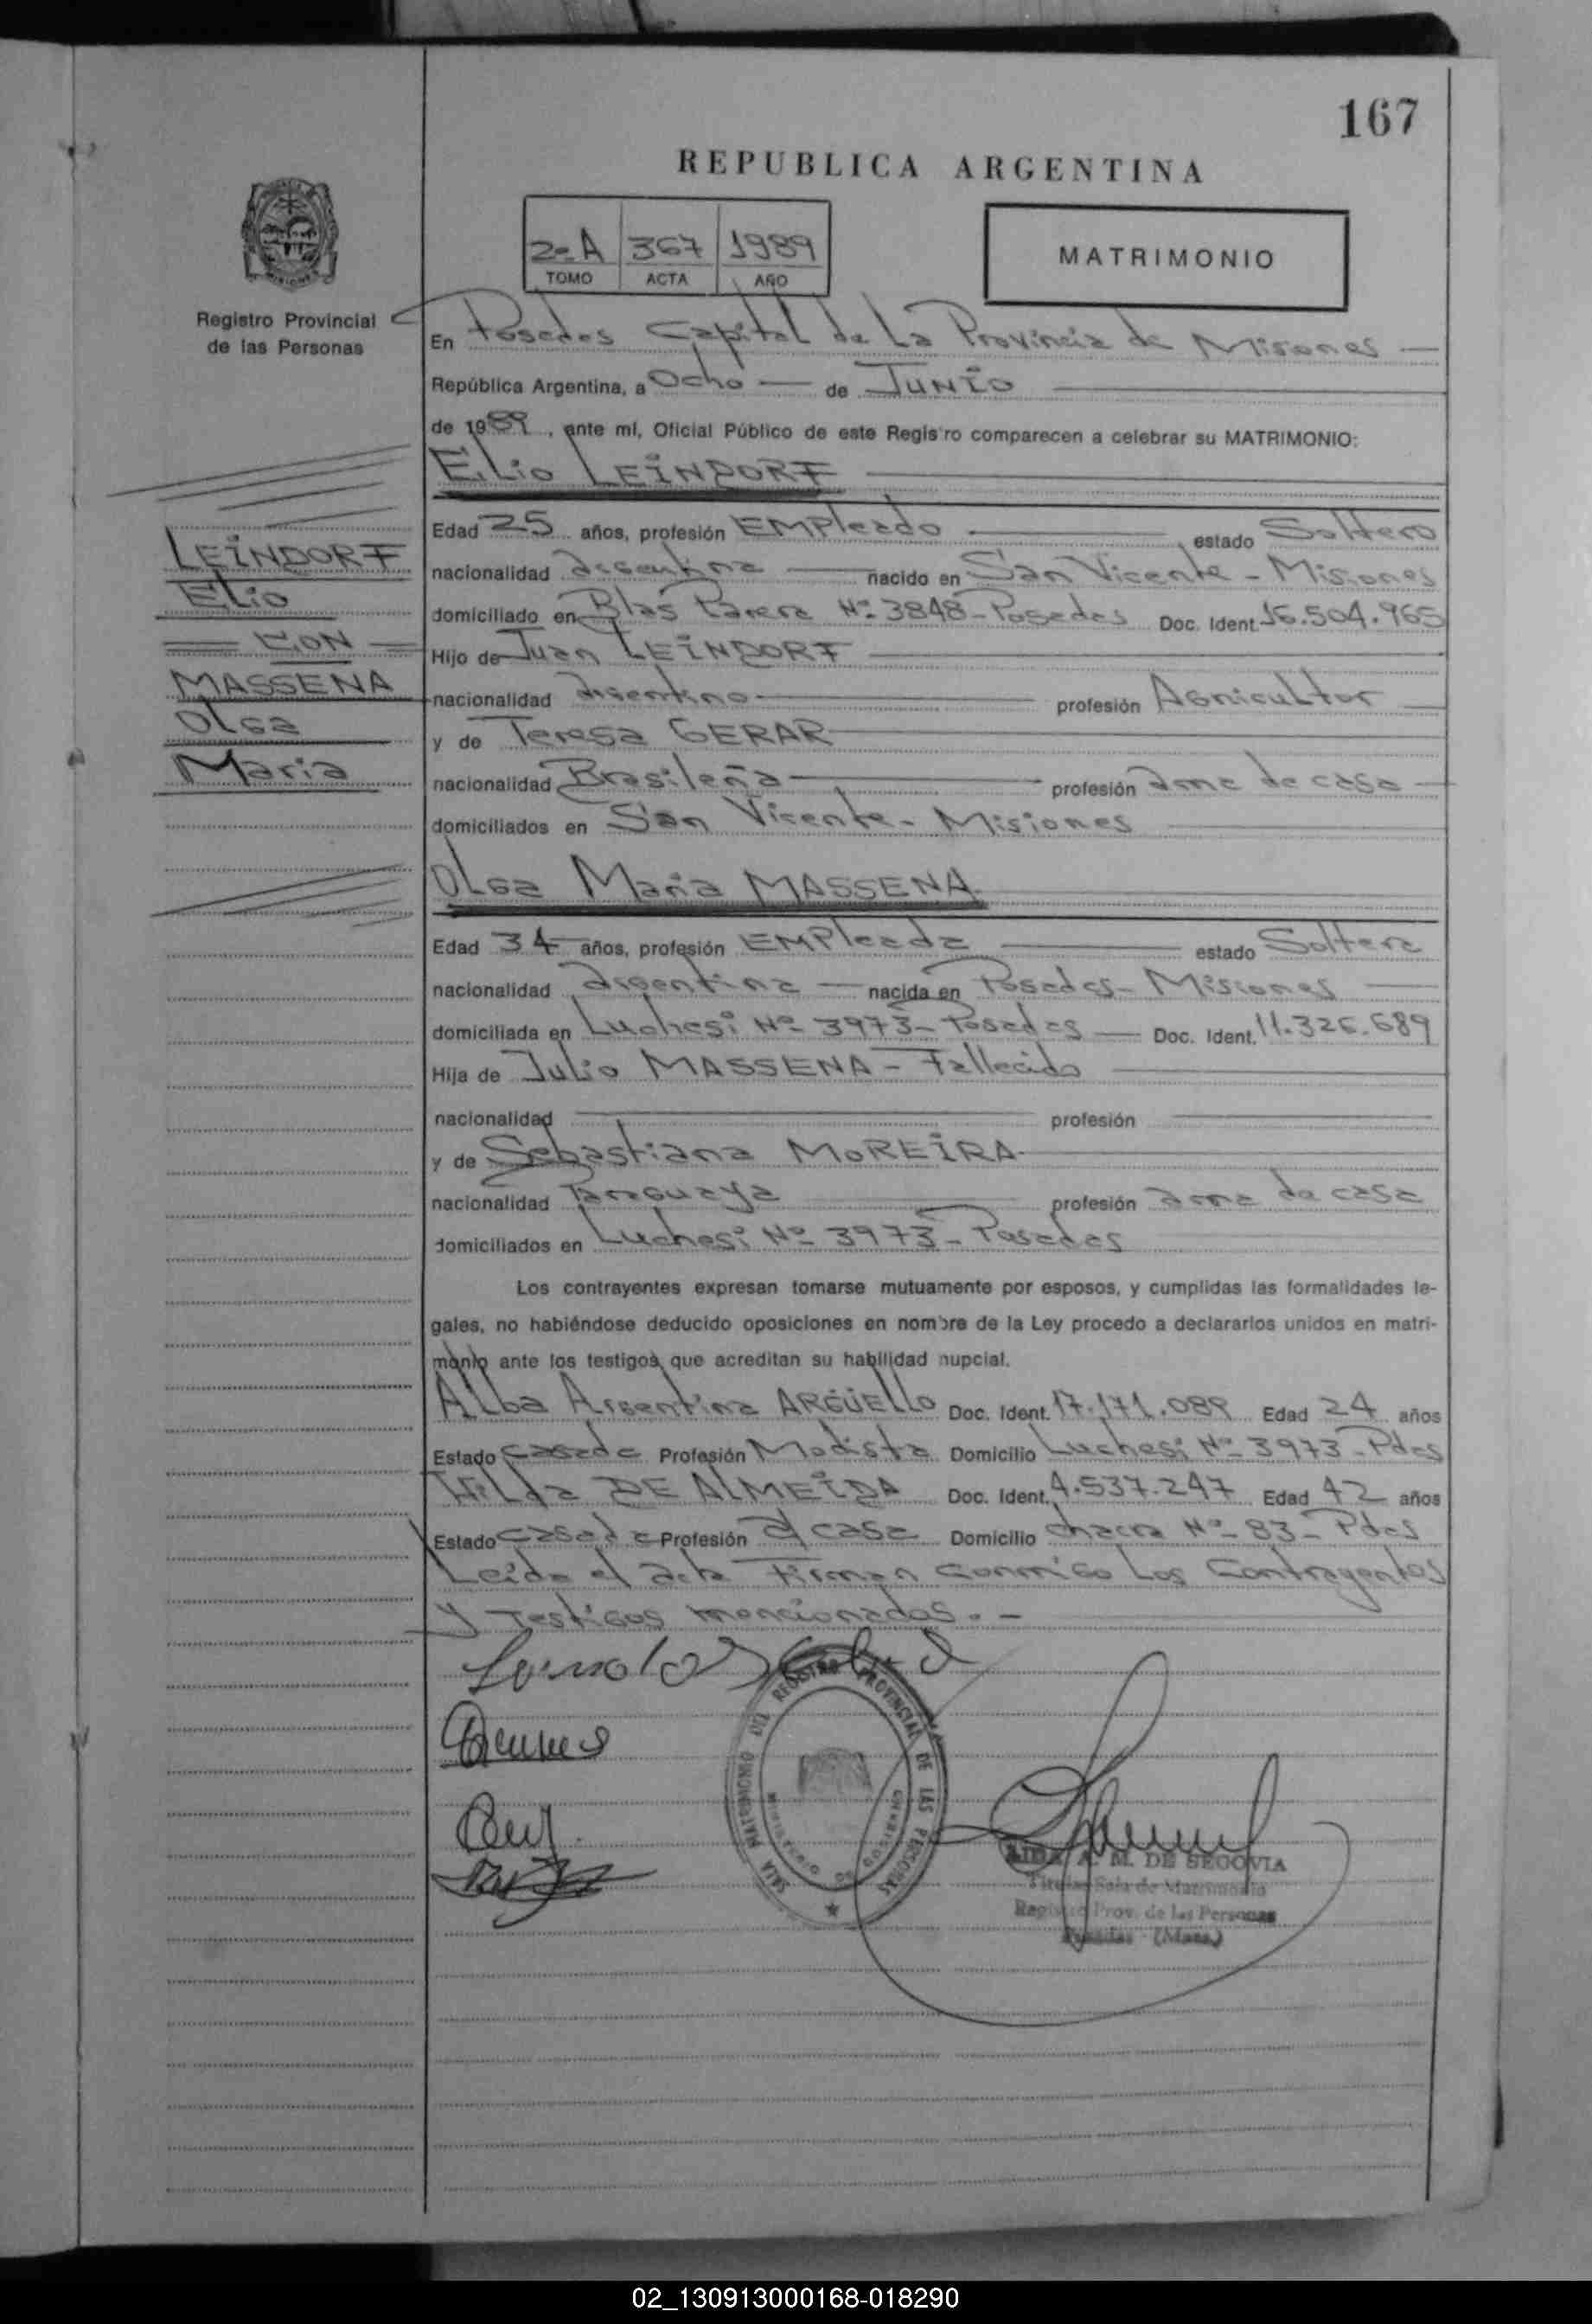 167
REPUBLICA ARGENTINA
2º A 367 1989
TOMO ACTA AÑO
MATRIMONIO
Registro Provincial
de las Personas
En Posadas Capital de La Provincia de Misiones
República Argentina, a Ocho de JUNIO
de 1989, ante mí, Oficial Público de este Registro comparecen a celebrar su MATRIMONIO:
Elio LEINDORF
Edad 25 años, profesión EMPleado estado Soltero
nacionalidad argentina nacido en San Vicente - Misiones
domiciliado en Blas Parera Nº 3848 - Posadas Doc. Ident. 16.504.965
Hijo de Juan LEINDORF
nacionalidad argentino profesión Agricultor
y de Teresa GERAR
nacionalidad Brasileña profesión ama de casa
domiciliados en San Vicente - Misiones
LEINDORF
Elio
CON
MASSENA
Olga
Maria
Olga Maria MASSENA
Edad 34 años, profesión EMPleada estado Soltera
nacionalidad argentina nacida en Posadas - Misiones
domiciliada en Luchesi Nº 3973 - Posadas Doc. Ident. 11.326.689
Hija de Julio MASSENA - Fallecido
nacionalidad profesión
y de Sebastiana MOREIRA
nacionalidad Paraguaya profesión ama de casa
domiciliados en Luchesi Nº 3973 - Posadas
Los contrayentes expresan tomarse mutuamente por esposos, y cumplidas las formalidades le-
gales, no habiéndose deducido oposiciones en nombre de la Ley procedo a declararlos unidos en matri-
monio ante los testigos que acreditan su habilidad nupcial.
Alba Argentina ARGÜELLO Doc. Ident. 17.171.089 Edad 24 años
Estado casada Profesión Modista Domicilio Luchesi Nº 3973 - Pdas
Hilda DE ALMEIDA Doc. Ident. 4.537.247 Edad 42 años
Estado casada Profesión a/ casa Domicilio chacra Nº 83 - Pdas
Leida el acta Firman conmigo Los Contrayentes
y testigos mencionados. -
SALA MATRIMONIO DEL REGISTRO PROVINCIAL DE LAS PERSONAS
MINISTERIO DE GOBIERNO
A. M. DE SEGOVIA
Titular Sala de Matrimonio
Registro Prov. de las Personas
Posadas - (Mnes.)
02_130913000168-018290